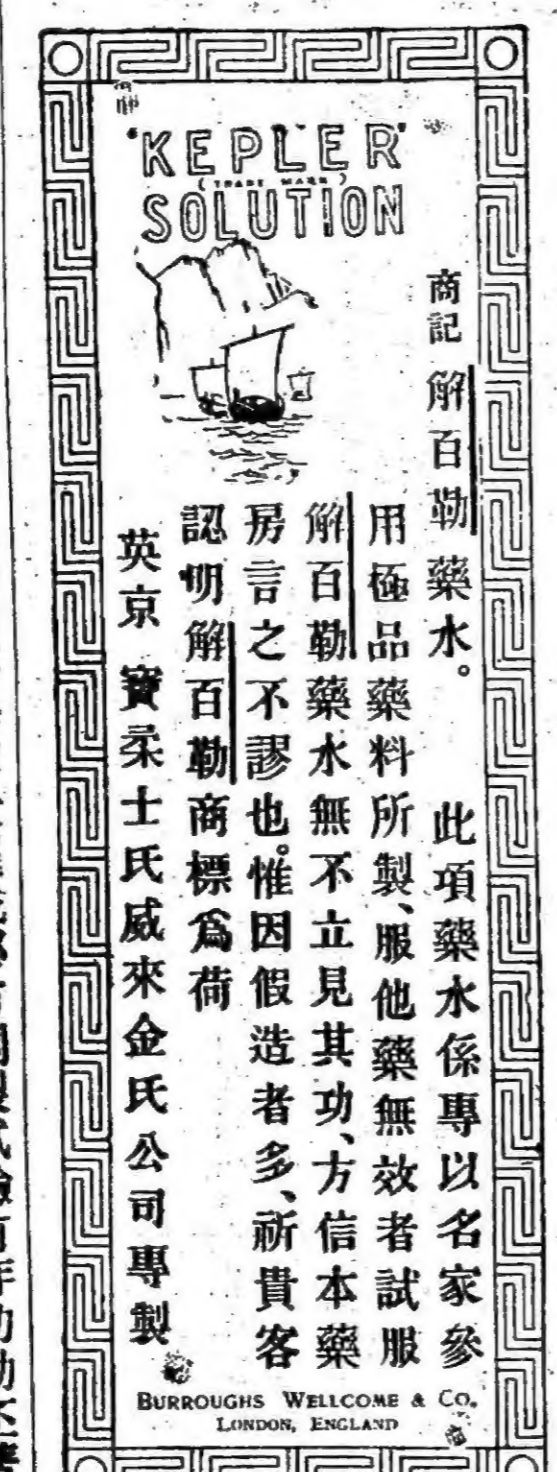 'KEPLER'
(TRADE MARK)
SOLUTION
商記 解百勒藥水。 此項藥水係專以名家參
用極品藥料所製、服他藥無效者試服
解百勒藥水無不立見其功、方信本藥
房言之不謬也。惟因假造者多、祈貴客
認明解百勒商標爲荷
英京 寳柔士氏威來金氏公司專製
BURROUGHS WELLCOME & Co.
LONDON, ENGLAND